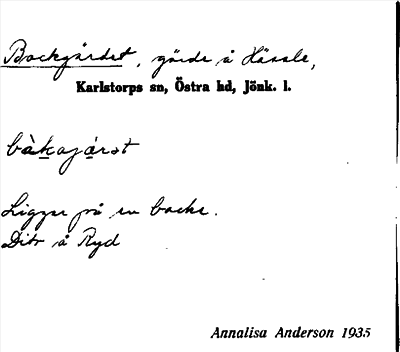 Backgärdet, gärde å Hässle,
Karlstorps sn, Östra hd, Jönk. l.
bàkajárət
Ligger på en backe.
Dito å Ryd
Annalisa Anderson 1935